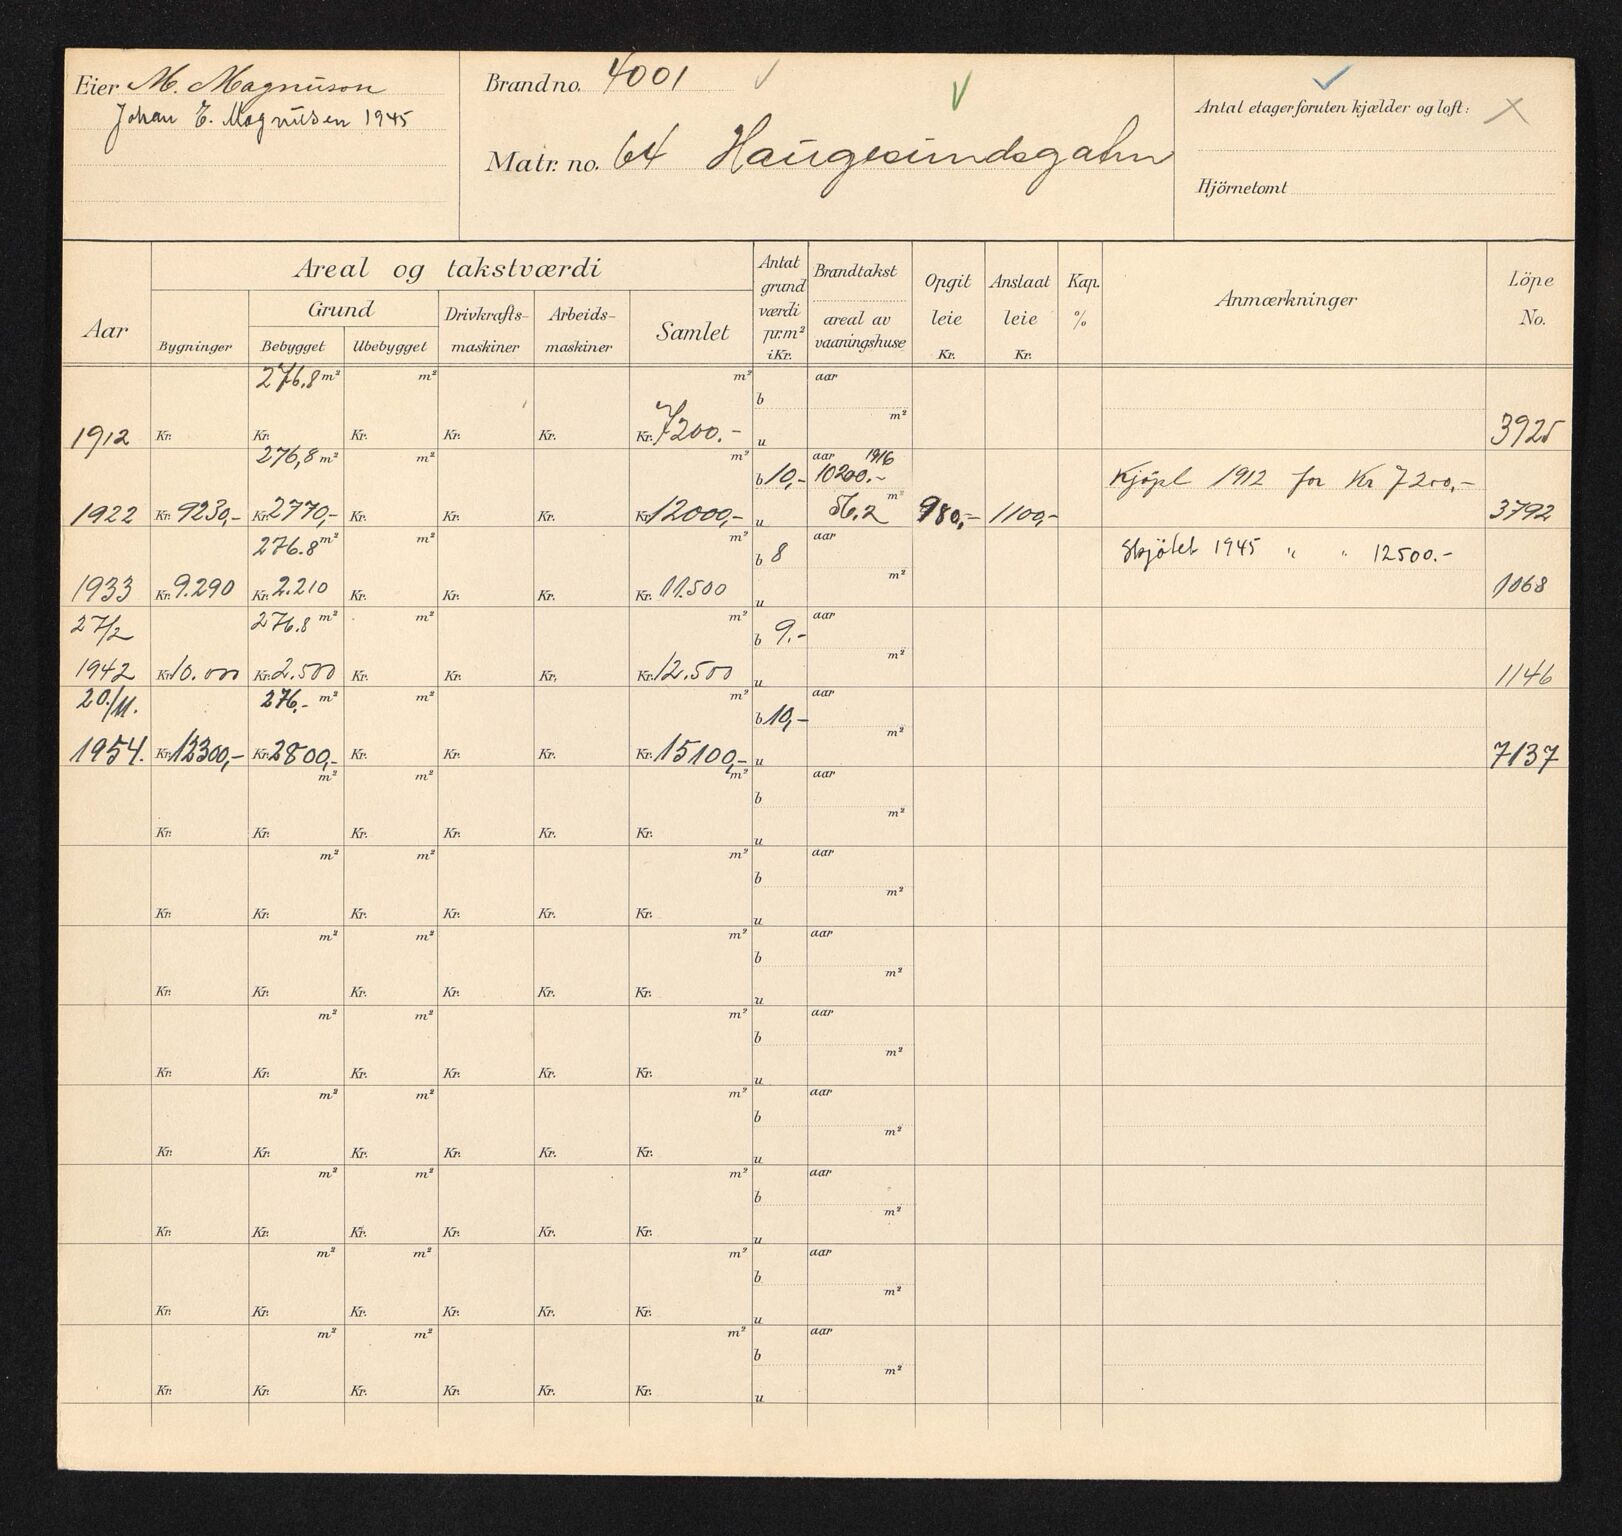 Eier M. Magnuson
Johan E. Magnussen 1945
Brand no. 4001
Matr. no. 64 Haugesundsgaten
Antal etager foruten kjælder og loft:
Hjörnetomt
Aar
Areal og takstværdi
Grund
Bygninger
Bebygget
Ubebygget
Drivkrafts-
maskiner
Arbeids-
maskiner
Samlet
Antat
grund
værdi
pr. m²
i Kr.
Brandtakst
areal av
vaaningshuse
Opgit
leie
Kr.
Anslaat
leie
Kr.
Kap.
%
Anmærkninger
Löpe
No.
276,8 m² m² m² aar
b m²
1912 Kr. Kr. Kr. Kr. Kr. Kr. 7200.- u 3925
276,8 m² m² m² aar 1916
b 10,- 10200.- Kjöpt 1912 for Kr 7200,-
1922 Kr. 9230,- Kr. 2770,- Kr. Kr. Kr. Kr. 12000,- u 56.2 m² 980,- 1100,- 3792
276.8 m² m² m² aar
b 8 m² Skjötet 1945 " " 12500.-
1933 Kr. 9.290 Kr. 2.210 Kr. Kr. Kr. Kr. 11.500 u 1068
27/2 276.8 m² m² m² aar
b 9.- m²
1942 Kr. 10.000 Kr. 2.500 Kr. Kr. Kr. Kr. 12.500 u 1146
20/11. 276,- m² m² m² aar
b 10,- m²
1954. Kr. 12300,- Kr. 2800,- Kr. Kr. Kr. Kr. 15100,- u 7137
m² m² m² aar
b m²
Kr. Kr. Kr. Kr. Kr. Kr. u
m² m² m² aar
b m²
Kr. Kr. Kr. Kr. Kr. Kr. u
m² m² m² aar
b m²
Kr. Kr. Kr. Kr. Kr. Kr. u
m² m² m² aar
b m²
Kr. Kr. Kr. Kr. Kr. Kr. u
m² m² m² aar
b m²
Kr. Kr. Kr. Kr. Kr. Kr. u
m² m² m² aar
b m²
Kr. Kr. Kr. Kr. Kr. Kr. u
m² m² m² aar
b m²
Kr. Kr. Kr. Kr. Kr. Kr. u
m² m² m² aar
b m²
Kr. Kr. Kr. Kr. Kr. Kr. u